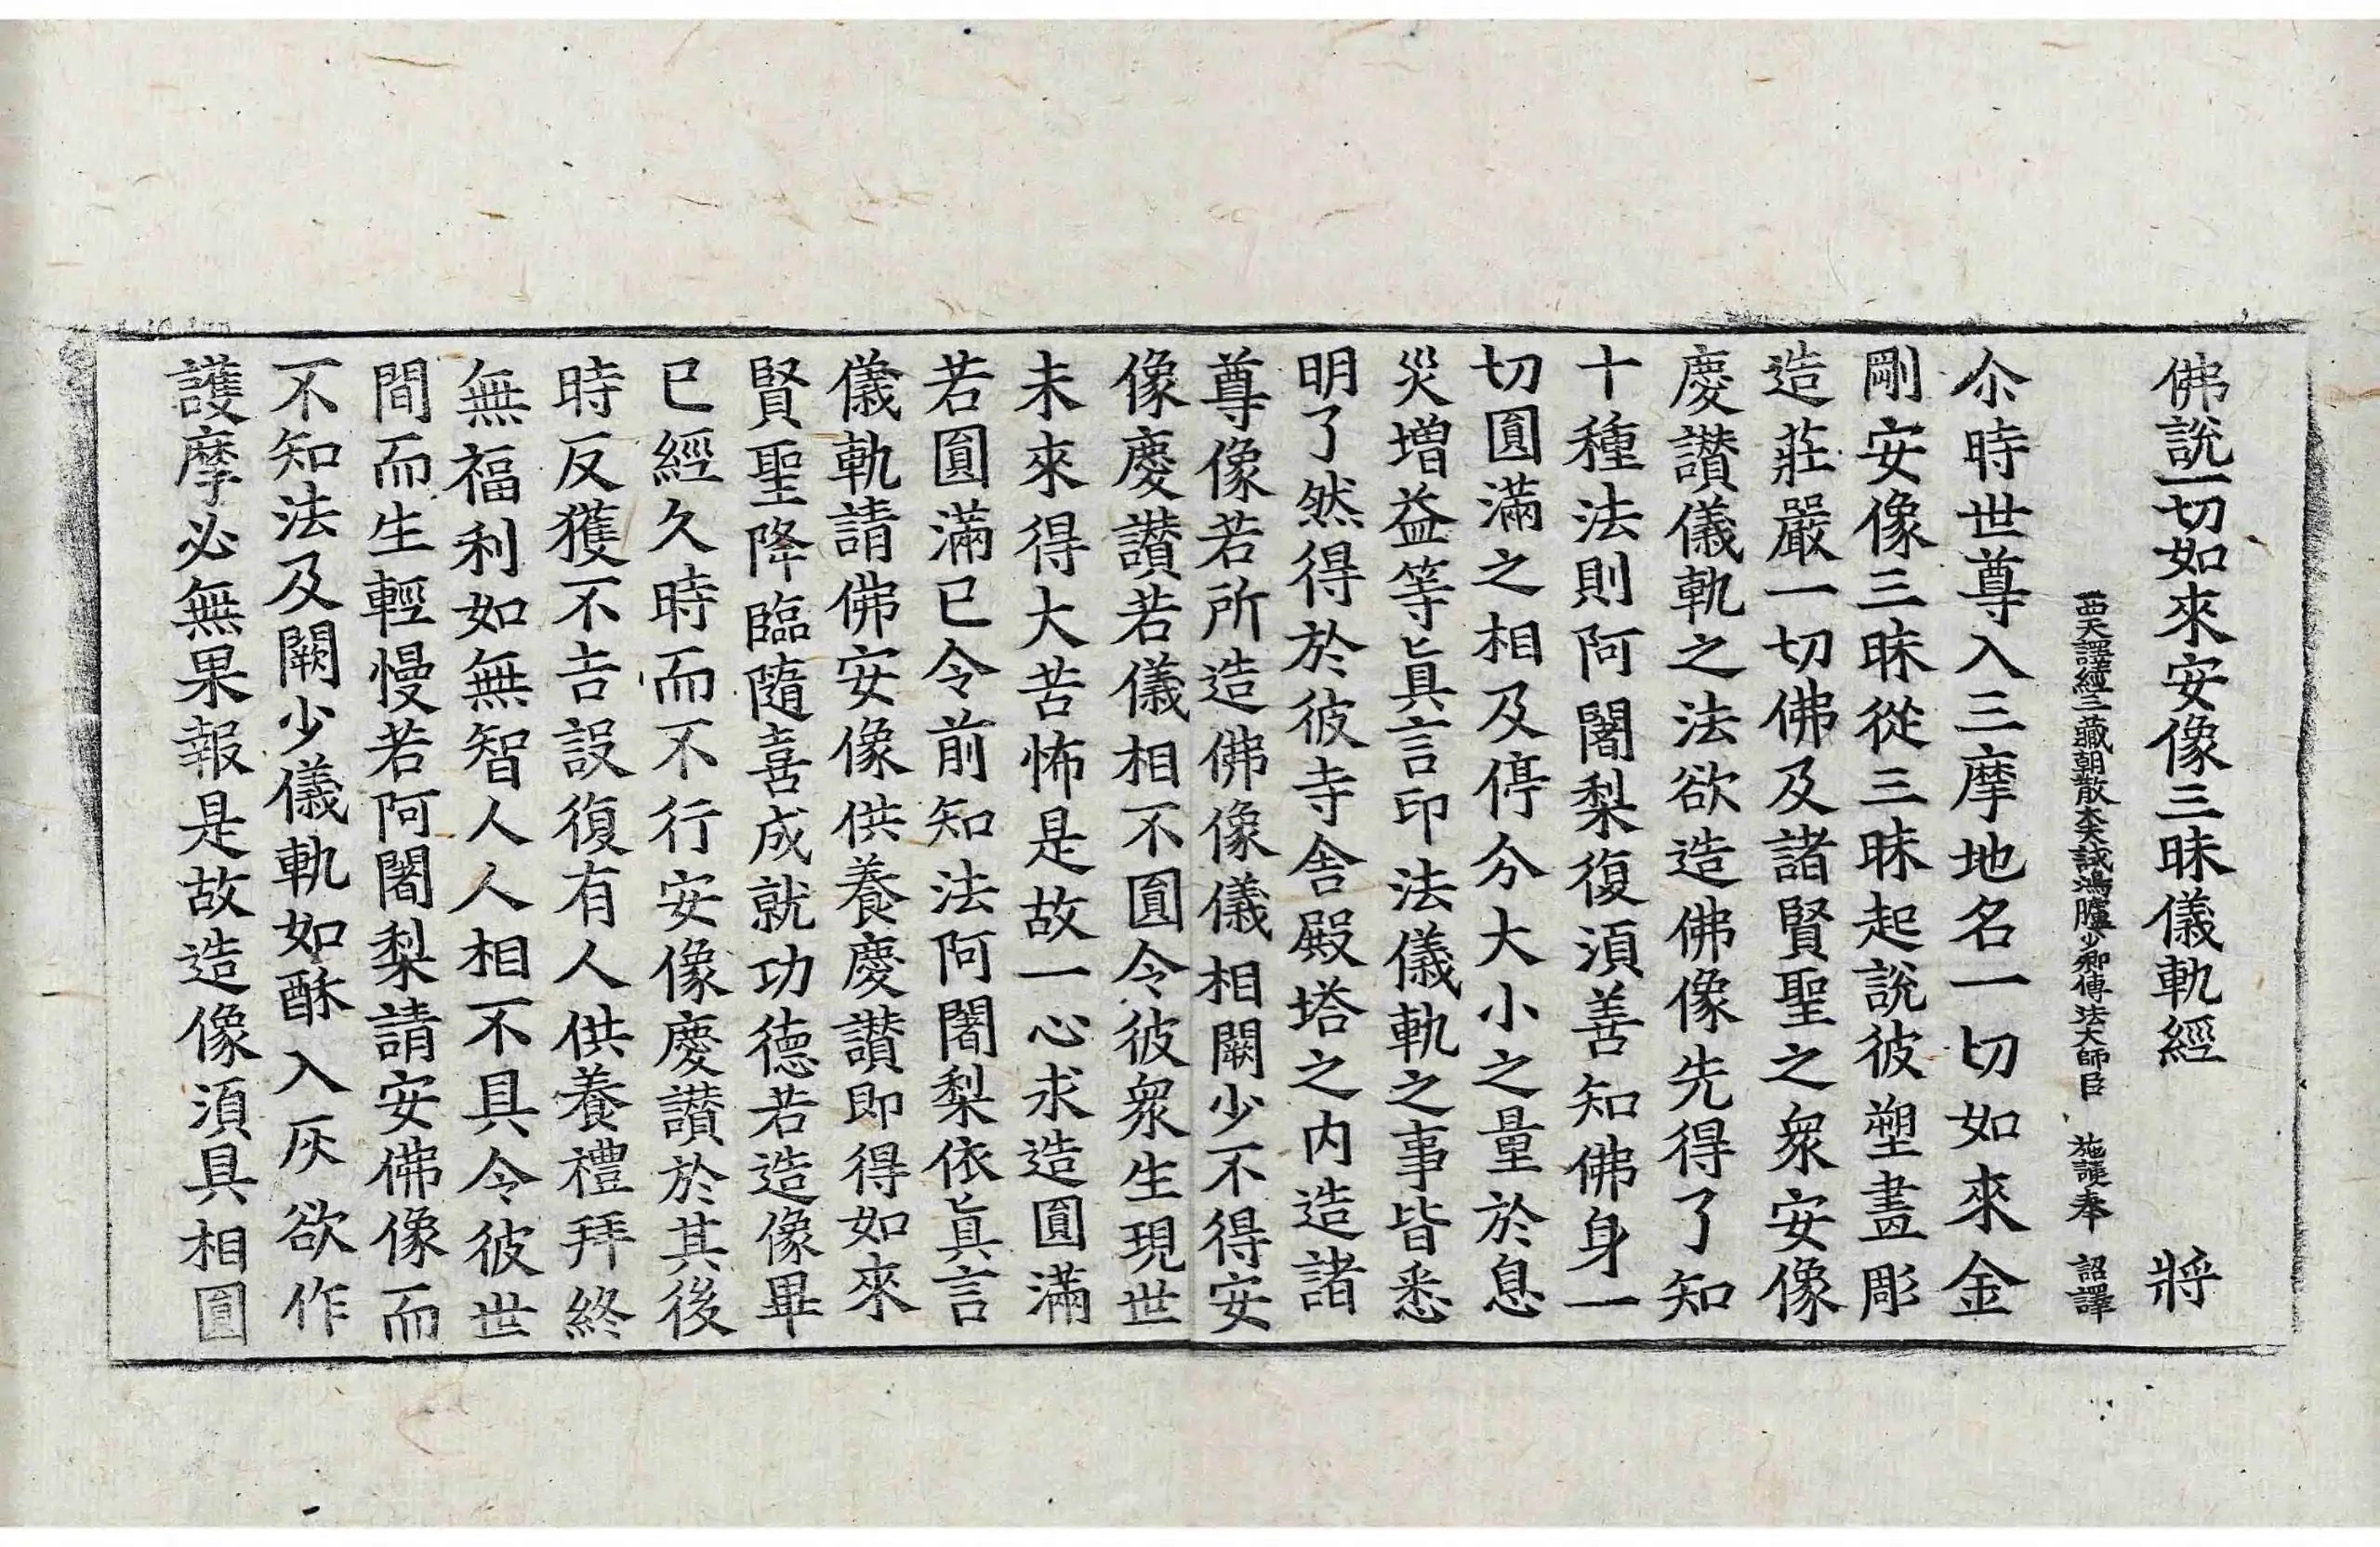 佛說一切如來安像三昧儀軌經 將
西天譯經三藏朝散大夫試鴻臚少卿傳法大師臣 施護奉 詔譯
尒時世尊入三摩地名一切如來金
剛安像三昧從三昧起說彼塑畫彫
造莊嚴一切佛及諸賢聖之眾安像
慶讃儀軌之法欲造佛像先得了知
十種法則阿闍梨復須善知佛身一
切圓滿之相及停分大小之量於息
災增益等真言印法儀軌之事皆悉
明了然得於彼寺舍殿塔之內造諸
尊像若所造佛像儀相闕少不得安
像慶讃若儀相不圓令彼眾生現世
未來得大苦怖是故一心求造圓滿
若圓滿已令前知法阿闍梨依真言
儀軌請佛安像供養慶讃即得如來
賢聖降臨隨喜成就功德若造像畢
已經久時而不行安像慶讃於其後
時反獲不吉設復有人供養禮拜終
無福利如無智人人相不具令彼世
間而生輕慢若阿闍梨請安佛像而
不知法及闕少儀軌如酥入灰欲作
護摩必無果報是故造像須具相圓